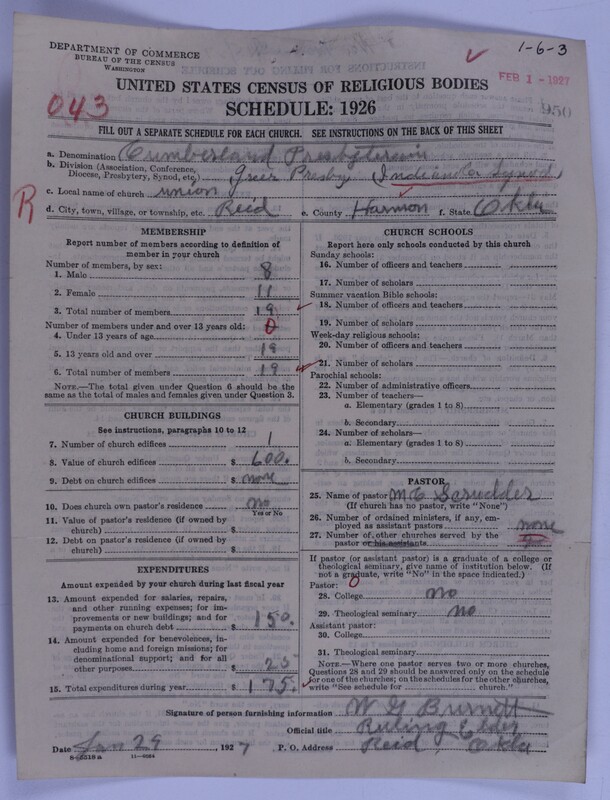 1-6-3
DEPARTMENT OF COMMERCE
BUREAU OF THE CENSUS
WASHINGTON
FEB 1 - 1927
950
UNITED STATES CENSUS OF RELIGIOUS BODIES
SCHEDULE: 1926
043
FILL OUT A SEPARATE SCHEDULE FOR EACH CHURCH. SEE INSTRUCTIONS ON THE BACK OF THIS SHEET
a. Denomination Cumberland Presbyterian
b. Division (Association, Conference, Diocese, Presbytery, Synod, etc.) Greer Presby. Indianola Synod
c. Local name of church union
R
d. City, town, village, or township, etc. Reid e. County Harmon f. State Okla
MEMBERSHIP
Report number of members according to definition of member in your church
Number of members, by sex:
1. Male 8
2. Female 11
3. Total number of members 19
Number of members under and over 13 years old:
4. Under 13 years of age 0
5. 13 years old and over 19
6. Total number of members 19
NOTE.—The total given under Question 6 should be the same as the total of males and females given under Question 3.
CHURCH BUILDINGS
See instructions, paragraphs 10 to 12
7. Number of church edifices 1
8. Value of church edifices $ 600.
9. Debt on church edifices $ none
10. Does church own pastor's residence? no
Yes or No
11. Value of pastor's residence (if owned by church) $
12. Debt on pastor's residence (if owned by church) $
EXPENDITURES
Amount expended by your church during last fiscal year
13. Amount expended for salaries, repairs, and other running expenses; for improvements or new buildings; and for payments on church debt $ 150.
14. Amount expended for benevolences, including home and foreign missions; for denominational support; and for all other purposes $ 25
15. Total expenditures during year $ 175.
CHURCH SCHOOLS
Report here only schools conducted by this church
Sunday schools:
16. Number of officers and teachers
17. Number of scholars
Summer vacation Bible schools:
18. Number of officers and teachers
19. Number of scholars
Week-day religious schools:
20. Number of officers and teachers
21. Number of scholars
Parochial schools:
22. Number of administrative officers
23. Number of teachers—
a. Elementary (grades 1 to 8)
b. Secondary
24. Number of scholars—
a. Elementary (grades 1 to 8)
b. Secondary
PASTOR
25. Name of pastor M C Scrudder
(If church has no pastor, write "None")
26. Number of ordained ministers, if any, employed as assistant pastors none
27. Number of other churches served by the pastor or his assistants
If pastor (or assistant pastor) is a graduate of a college or theological seminary, give name of institution below. (If not a graduate, write "No" in the space indicated.)
Pastor: 0
28. College no
29. Theological seminary no
Assistant pastor:
30. College
31. Theological seminary
NOTE.—Where one pastor serves two or more churches, Questions 28 and 29 should be answered only on the schedule for one of the churches; on the schedules for the other churches, write "See schedule for church."
Signature of person furnishing information W G Burnett
Official title Ruling Elder
Date Jan 29, 1927 P. O. Address Reid Okla
8—5318 a 11—4084